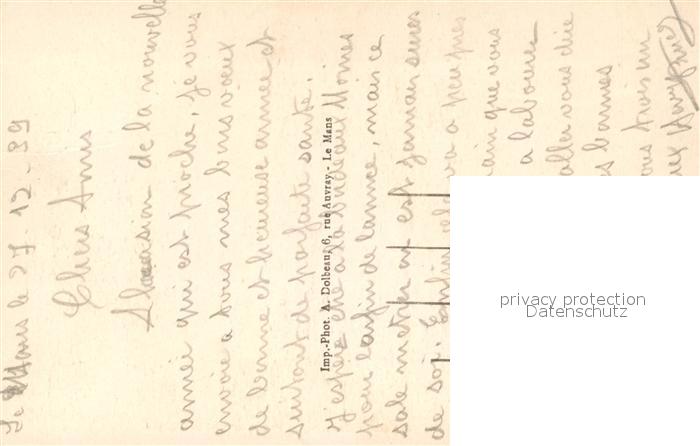 Le Mans le 27. 12. 39
Chers Amis
A l'occasion de la nouvelle
année qui est proche, je vous
envoie à tous mes bons vœux
de bonne et heureuse année et
surtout de parfaite santé.
J'espère être à la
pour la fin de l'année, mais ce
sale métier on est jamais sûrs
de soi. Enfin cela va à peu près
ain que vous
a labourer
aller vous dire
es bonnes
ous trois un
eux
Imp.-Phot. A. Dolbeau, 6, rue Auvray - Le Mans
privacy protection
Datenschutz